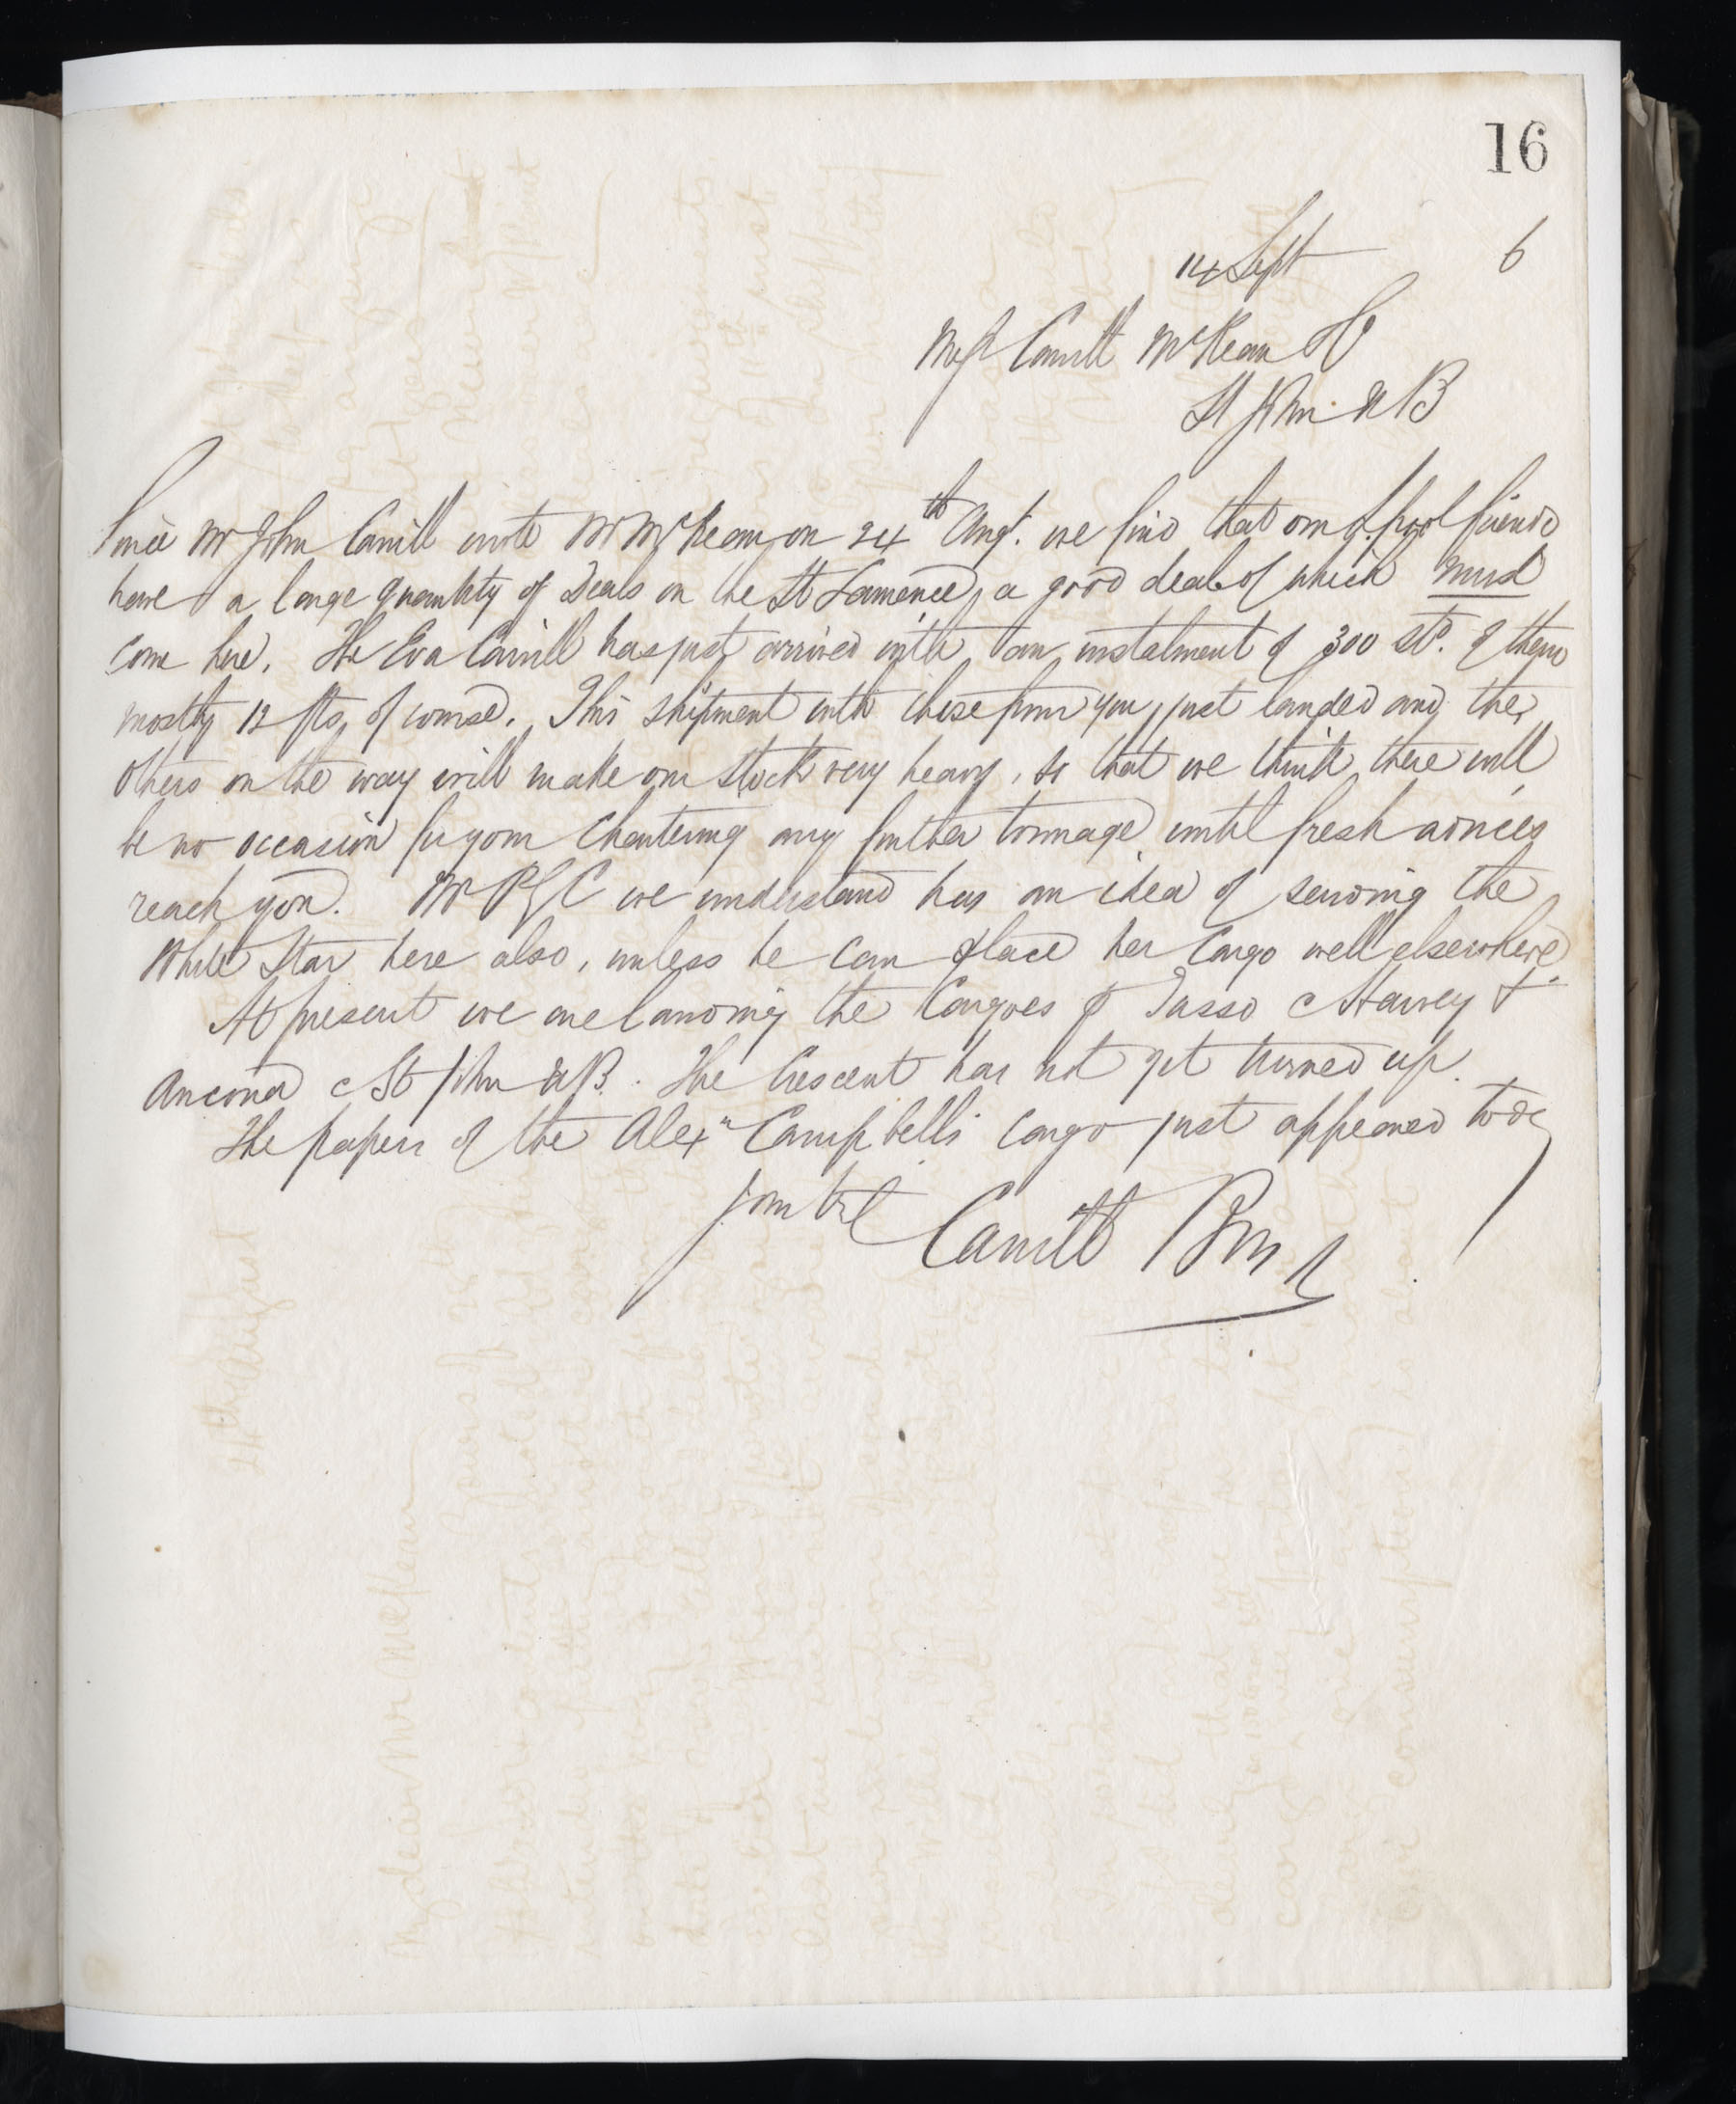 16
14 Sept 6
Messrs Carvill McKean &Co
St John NB
Since Mr John Carvill wrote Mr McKean on 24th Augt. we find that our L.pool friends
have a large quantity of Deals on the St Lawrence, a good deal of which must
come here. The Eva Carvill has just arrived with an instalment of 300 std. of them
mostly 12 fts, of course. This shipment with those from you just landed and the
others on the way will make our stock very heavy, so that we think there will
be no occasion for your chartering any further tonnage until fresh advices
reach you. Mr we understand has an idea of sending the
White Star here also, unless he can place her cargo well elsewhere.
At present we are landing the Cargoes p Tasso &
Ancona St John NB. The Crescent has not yet turned up.
The papers of the Alexr Campbell's cargo just appeared today
Yours truly Carvill Bros